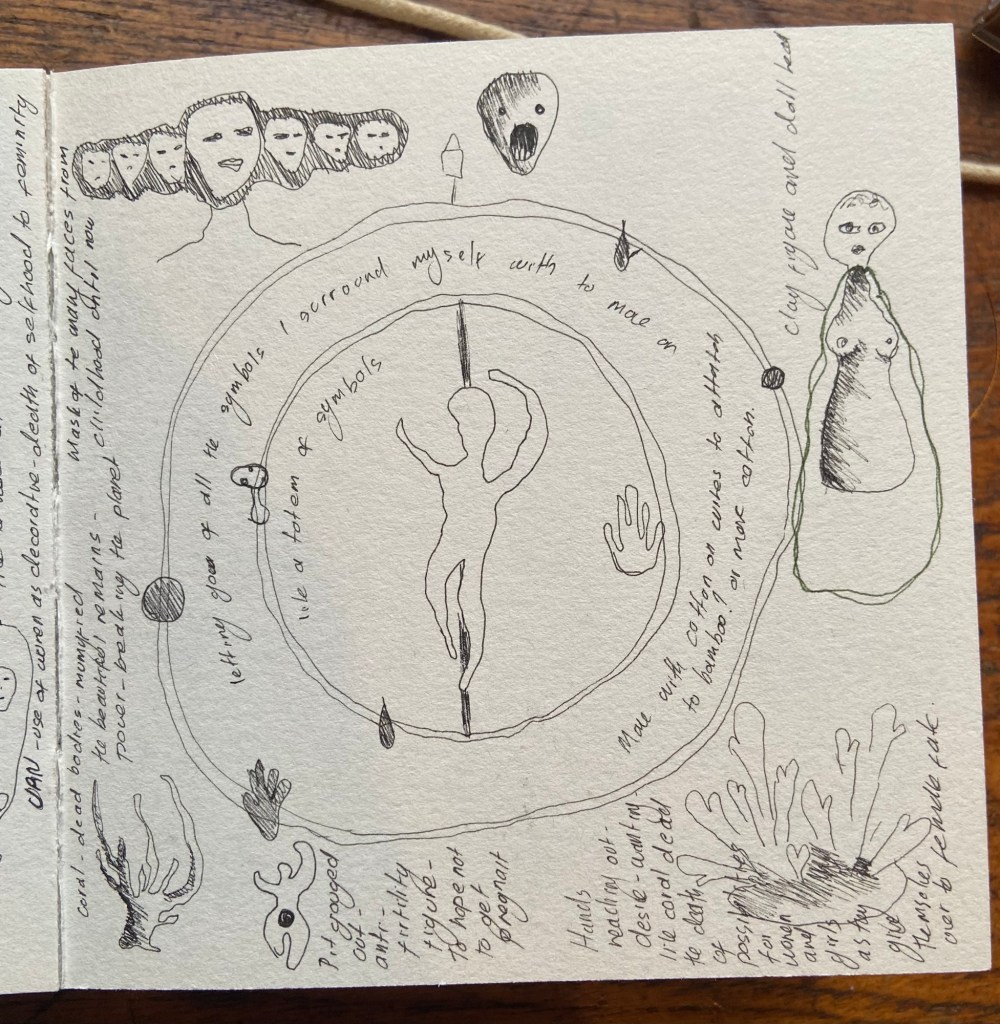 UAN - use of women as decorative - death of selfhood to feminity
coral - dead bodies - mumyfied
the beautiful remains -
power - breaking the planet
Mask of te many faces from
childhood until now
clay figure and doll head
letting goen of all the symbols I surround myself with to make an
like a totem of symbols
Made with cotton on wires to attatch
to bamboo? or more cotton.
Pit gouged
out -
anti -
firtility
figure -
To hope not
to get
pregnant
Hands
reaching out -
desire - wanting
like coral dead
te death
of
possibilities
for
women
and
girls
as they
give
themselves
over to female fate.